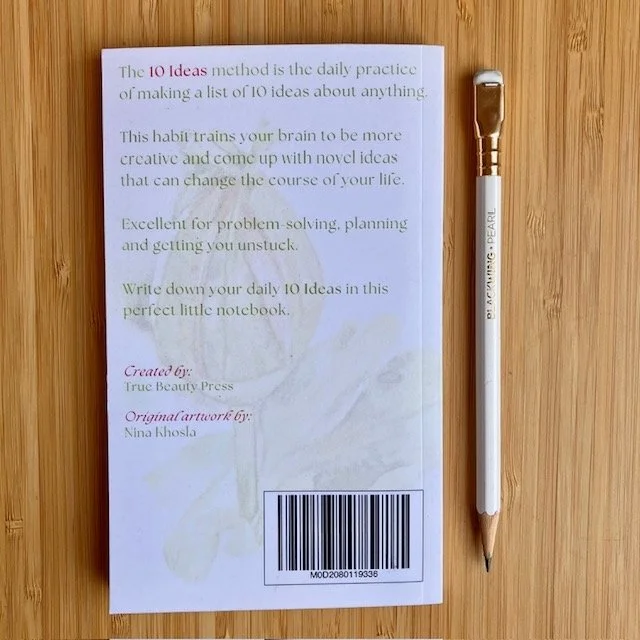 The 10 Ideas method is the daily practice
of making a list of 10 ideas about anything.
This habit trains your brain to be more
creative and come up with novel ideas
that can change the course of your life.
Excellent for problem-solving, planning
and getting you unstuck.
Write down your daily 10 Ideas in this
perfect little notebook.
Created by:
True Beauty Press
Original artwork by:
Nina Khosla
M0D2080119336
BLACKWING • PEARL